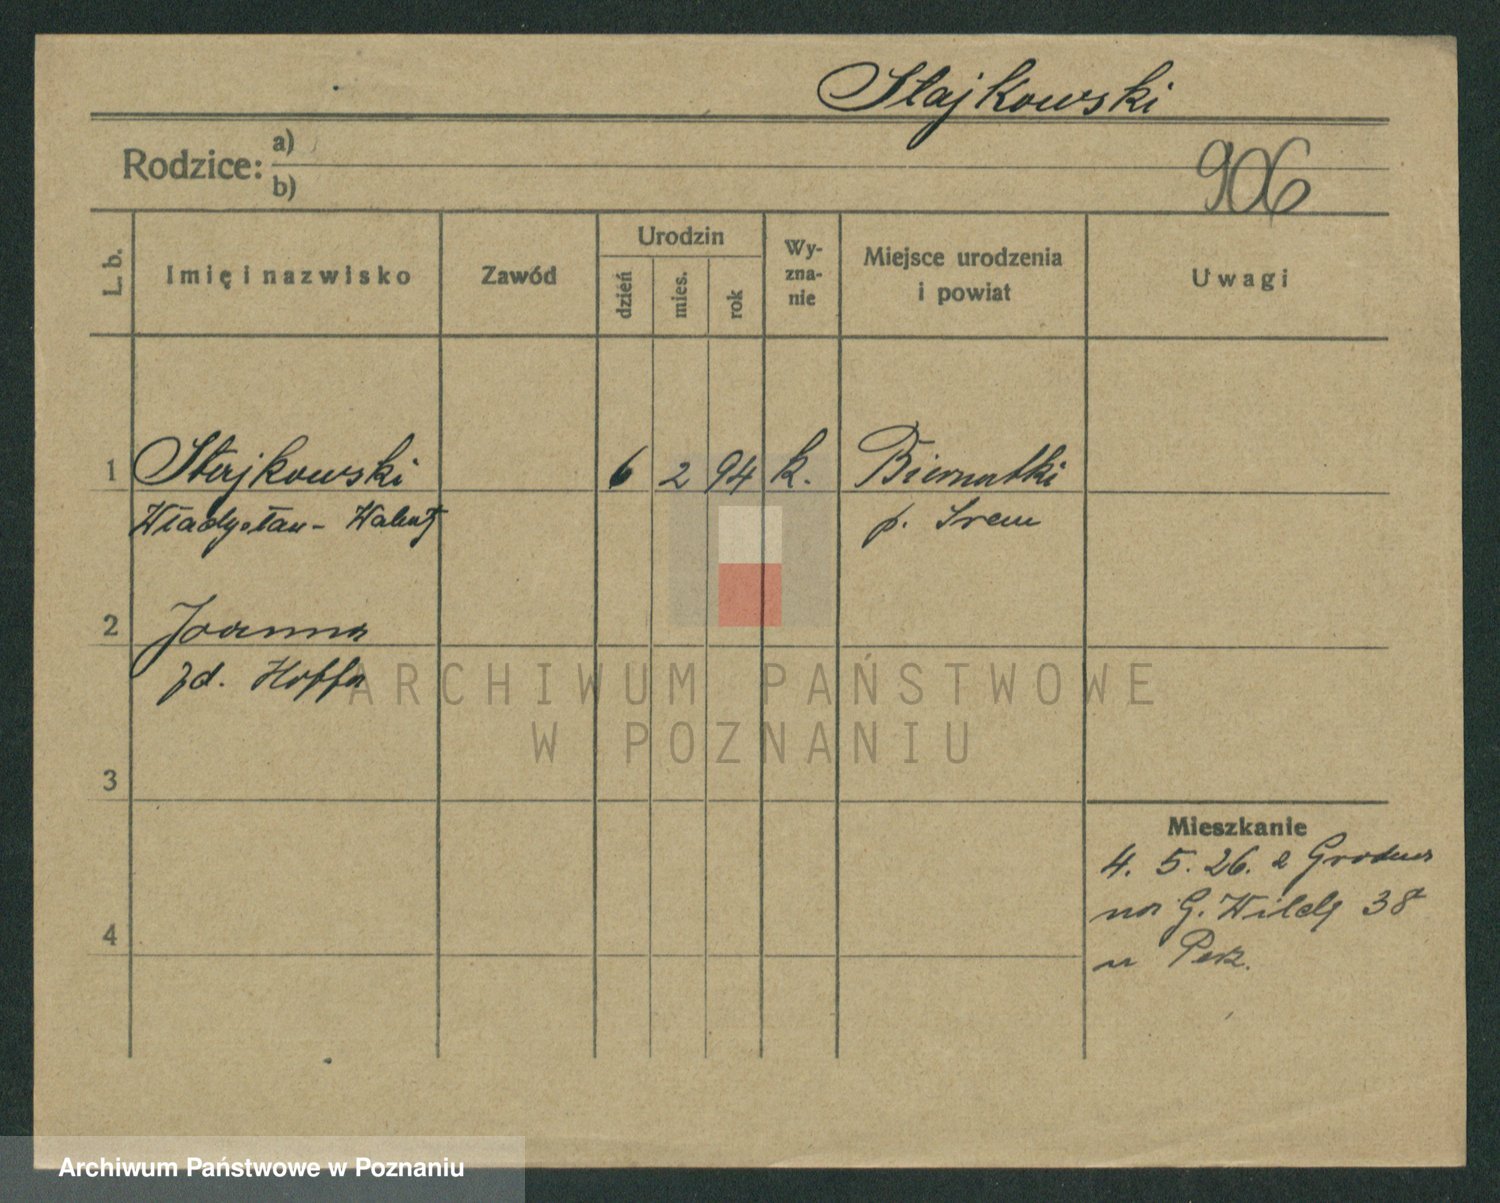 Stajkowski
Rodzice: a)
b)
906
L. b.
Imię i nazwisko
Zawód
Urodzin
dzień
mies.
rok
Wy-
zna-
nie
Miejsce urodzenia
i powiat
Uwagi
1 Stajkowski 6 2 94 k. Biernatki
Władysław - Walenty p. Srem
2 Joanna
zd. Hoffa
ARCHIWUM PAŃSTWOWE
W POZNANIU
3
Mieszkanie
4. 5. 26. z Grodna
na G. Wildę 38
4
w
Archiwum Państwowe w Poznaniu